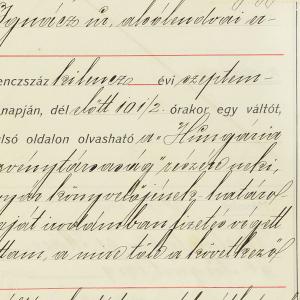 Ignácz úr, alsólendvai
enczszáz kilencz évi szeptem-
napján, dél előtt 10 1/2 órakor egy váltót,
ulsó oldalon olvasható a „Hungária
vénytársaság" részére neki,
könyvelőjének határol
ját irodámban fizetés végett
tam, a mire tőle a következő